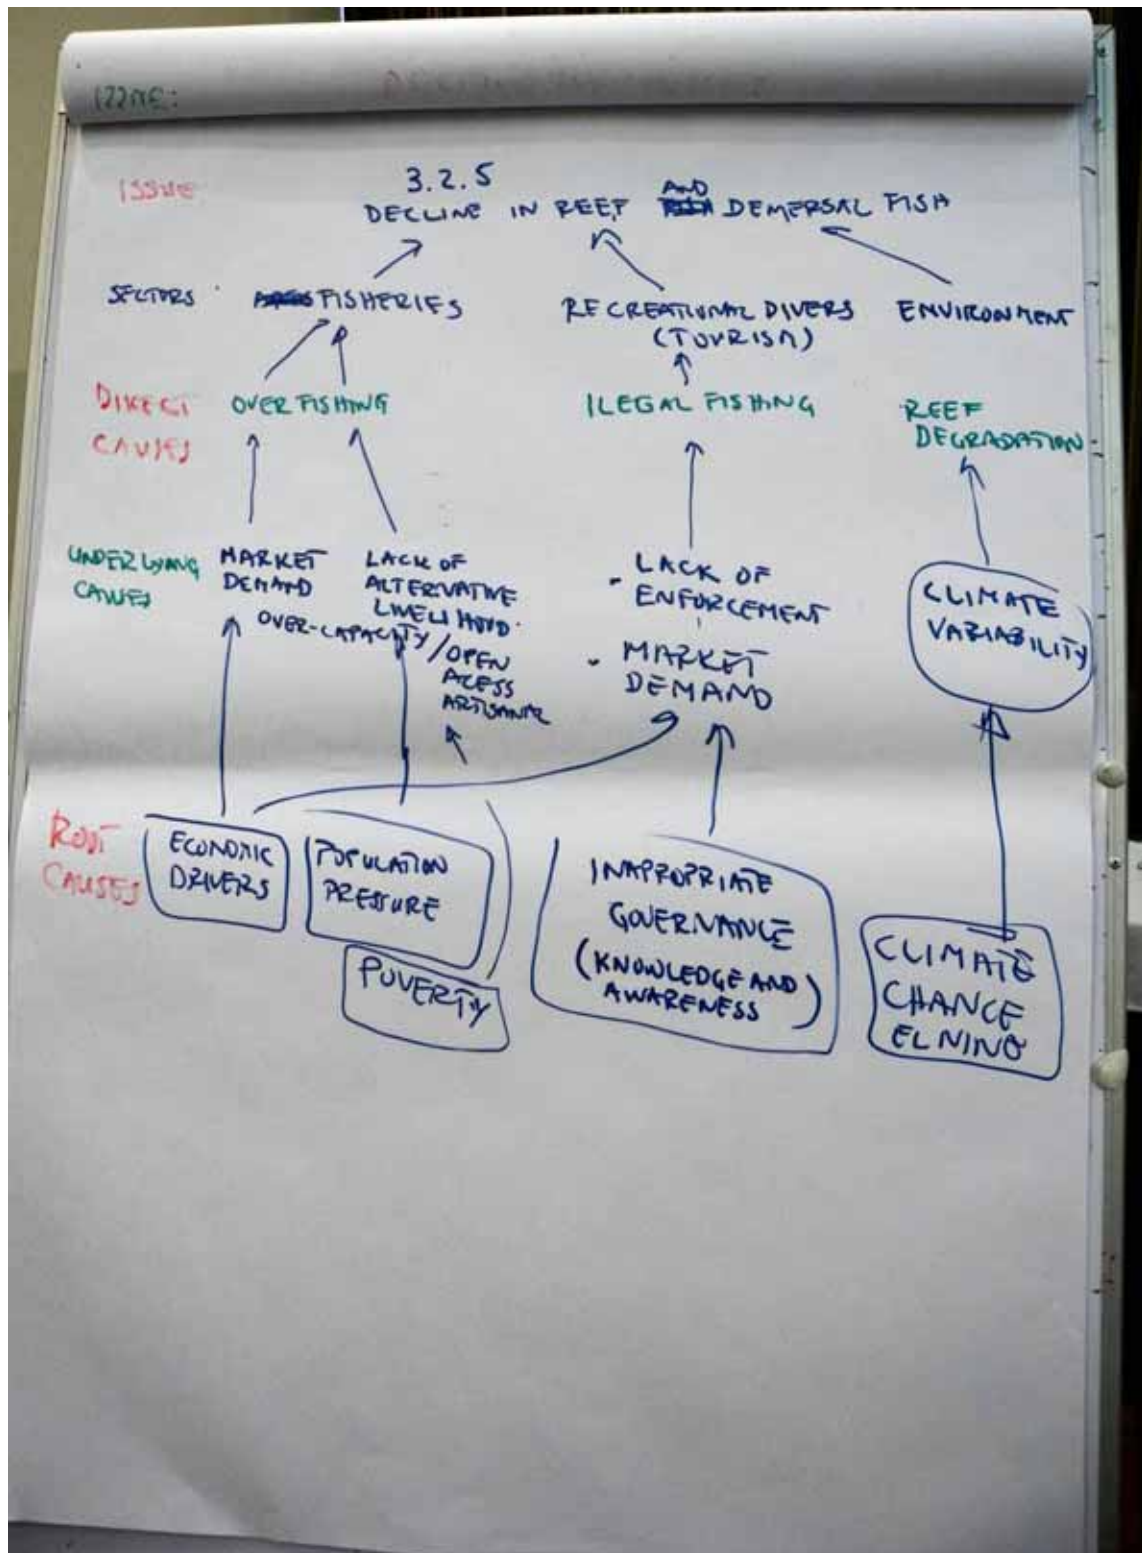 ISSUE:
ISSUE
3.2.5
DECLINE IN REEF AND DEMERSAL FISH
SECTORS
FISHERIES
RECREATIONAL DIVERS
(TOURISM)
ENVIRONMENT
DIRECT
CAUSES
OVERFISHING
ILEGAL FISHING
REEF
DEGRADATION
UNDERLYING
CAUSES
MARKET
DEMAND
LACK OF
ALTERNATIVE
LIVELIHOOD
OVER-CAPACITY/OPEN
ACESS
ARTISANAL
- LACK OF
ENFORCEMENT
- MARKET
DEMAND
CLIMATE
VARIABILITY
ROOT
CAUSES
ECONOMIC
DRIVERS
POPULATION
PRESSURE
POVERTY
INAPPROPRIATE
GOVERNANCE
(KNOWLEDGE AND
AWARENESS)
CLIMATE
CHANGE
EL NINO